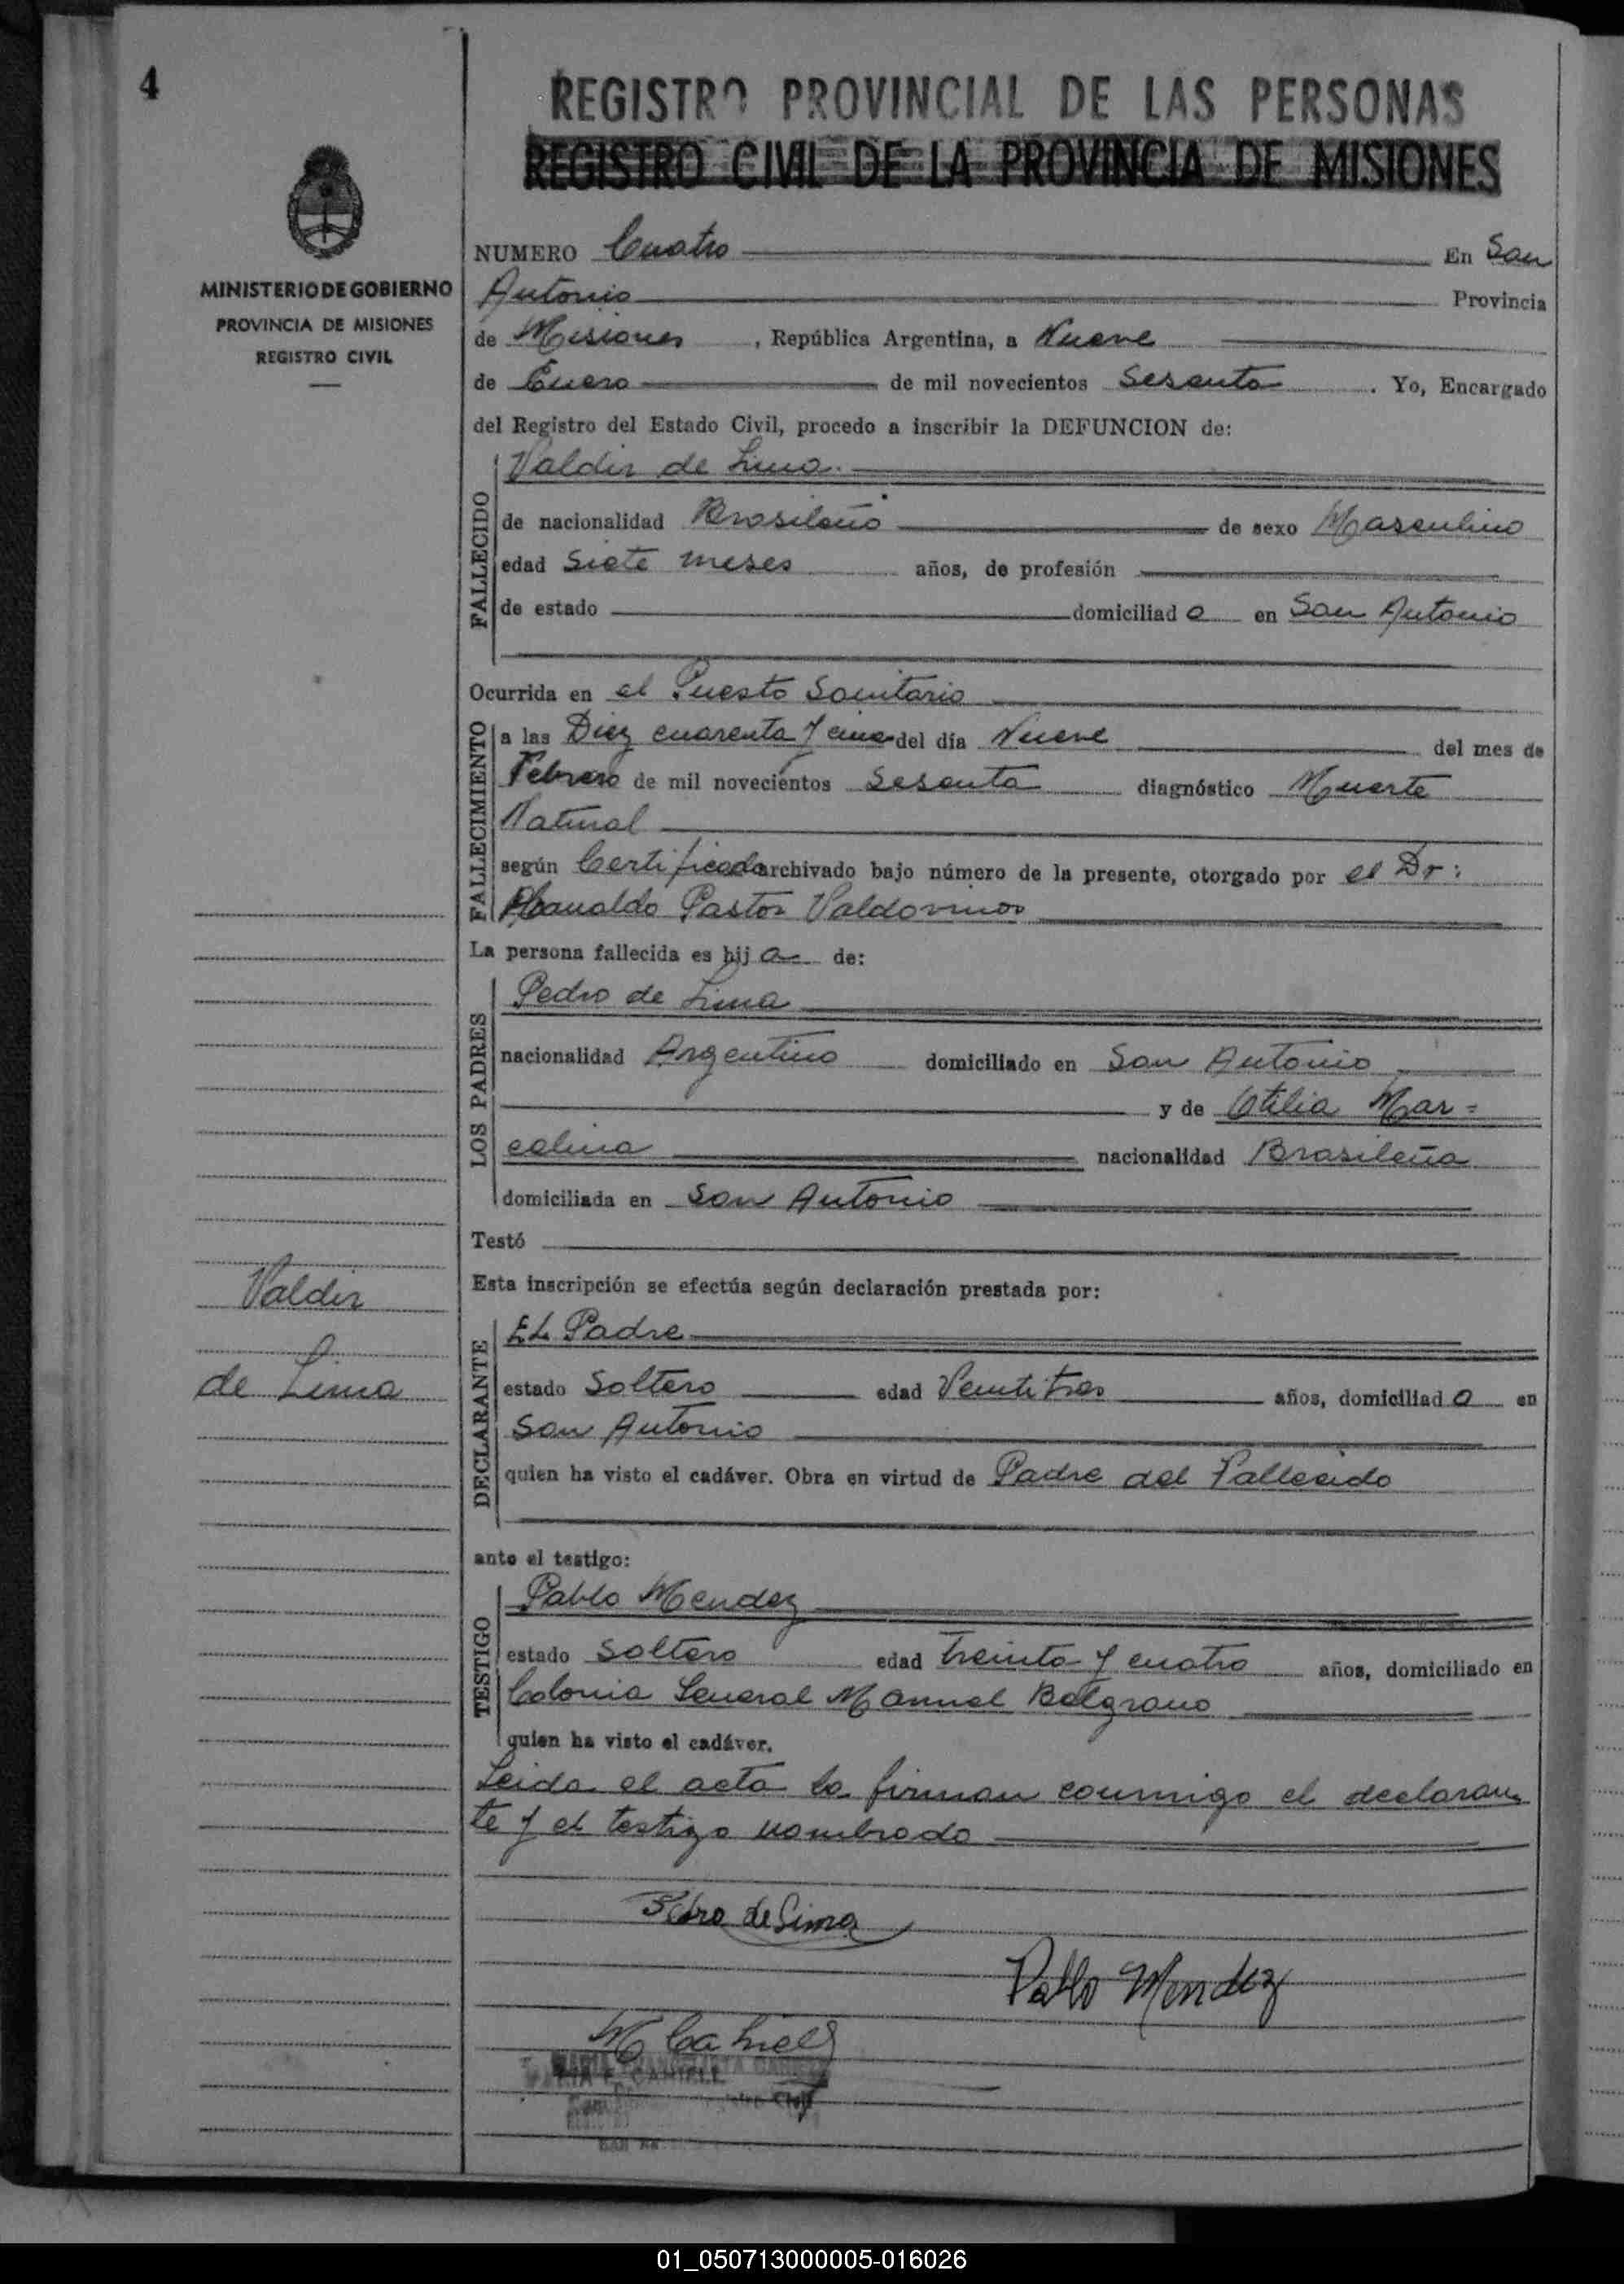 4
REGISTRO PROVINCIAL DE LAS PERSONAS
REGISTRO CIVIL DE LA PROVINCIA DE MISIONES
MINISTERIO DE GOBIERNO
PROVINCIA DE MISIONES
REGISTRO CIVIL
NUMERO Cuatro En San
Antonio Provincia
de Misiones, República Argentina, a Nueve
de Enero de mil novecientos Sesenta. Yo, Encargado
del Registro del Estado Civil, procedo a inscribir la DEFUNCION de:
FALLECIDO
Valdir de Lima.
de nacionalidad Brasileño de sexo Masculino
edad Siete meses años, de profesión
de estado domiciliado en San Antonio
Ocurrida en el Puesto Sanitario
FALLECIMIENTO
a las Diez cuarenta y cinco del día Nueve del mes de
Febrero de mil novecientos Sesenta diagnóstico Muerte
Natural
según Certificado archivado bajo número de la presente, otorgado por el Dr:
Pastor Valdovinos
La persona fallecida es hija de:
LOS PADRES
Pedro de Lima
nacionalidad Argentino domiciliado en San Antonio
y de Otilia Mar=
celina nacionalidad Brasileña
domiciliada en San Antonio
Testó
Esta inscripción se efectúa según declaración prestada por:
Valdir
de Lima
DECLARANTE
EL Padre
estado Soltero edad Veintitres años, domiciliado en
San Antonio
quien ha visto el cadáver. Obra en virtud de Padre del Fallecido
ante el testigo:
TESTIGO
Pablo Mendez
estado Soltero edad treinta y cuatro años, domiciliado en
Colonia General Manuel Belgrano
quien ha visto el cadáver.
Leida el acta la firman conmigo el declaran
te y el testigo nombrado
Pedro de Lima
Pablo Mendez
M Cañiel
01_050713000005-016026